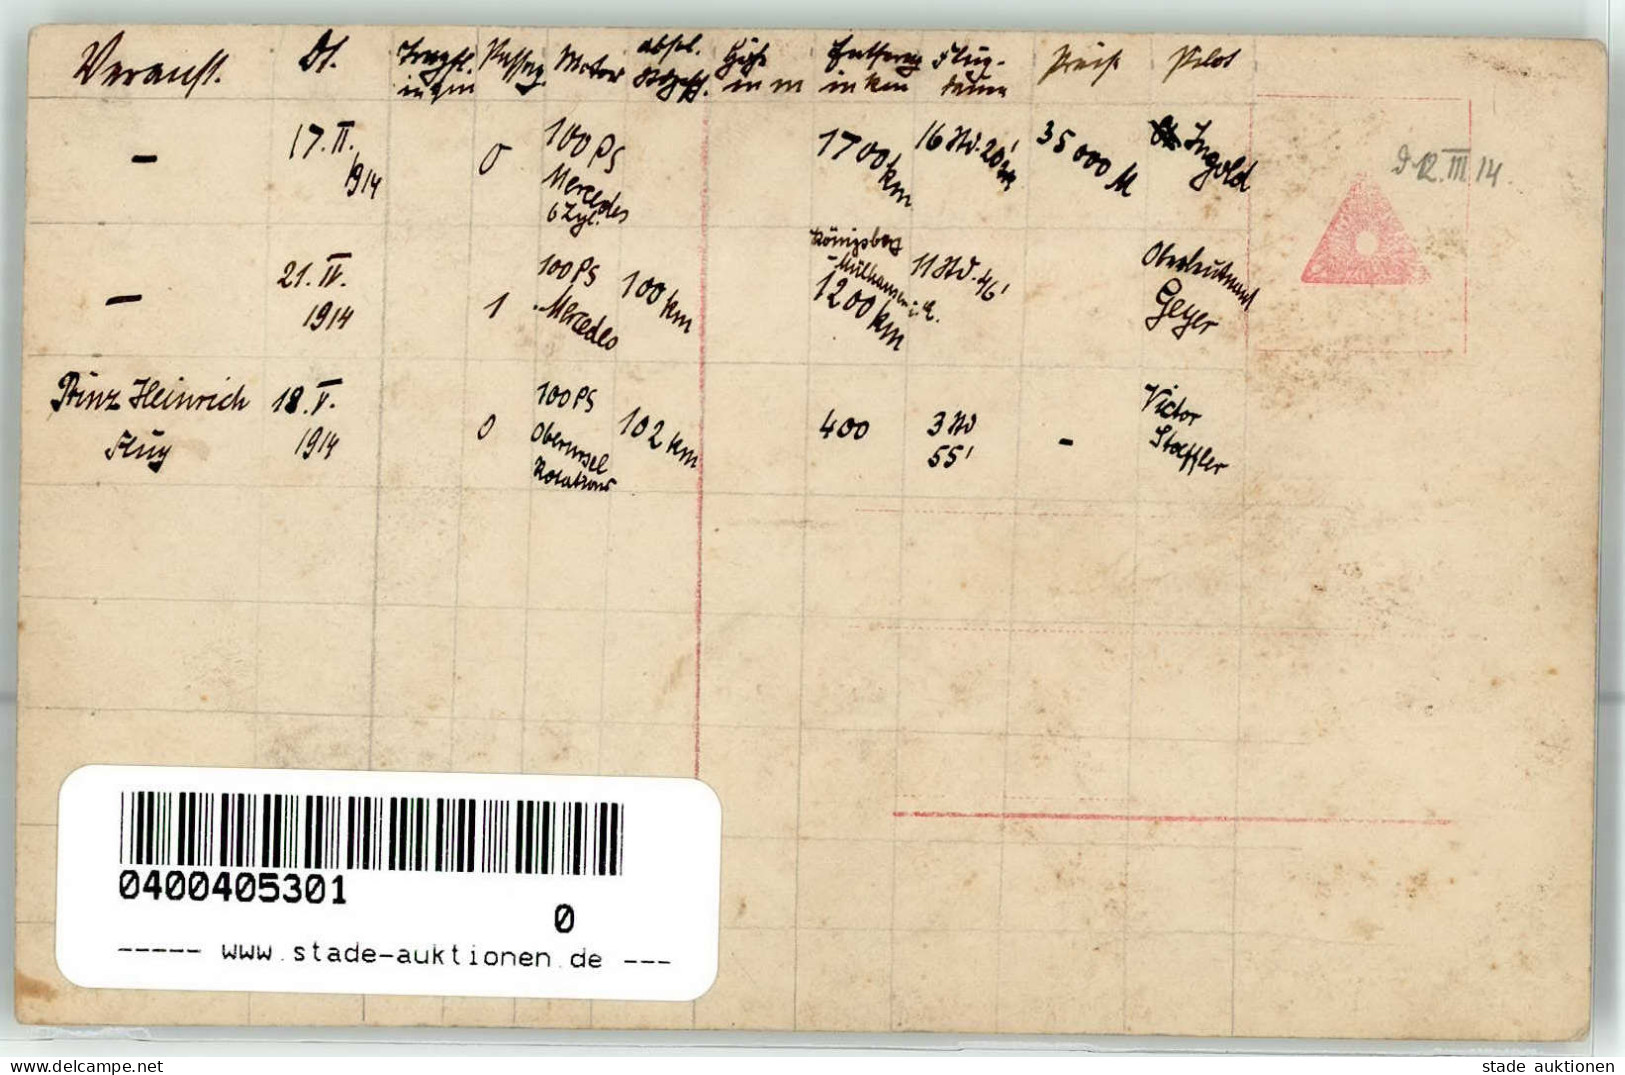 Veranst. Dt. Tragfl. in qm Passag. Motor absol. Stdgesch. Höhe in m Entferng in km Flug- dauer Preise Pilot
— 17. II. 1914 0 100 PS Mercedes 6 Zyl. 1700 km 16 Std. 20' 35000 M Ingold
— 21. IV. 1914 1 100 PS Mercedes 100 km Königsberg - Mülhausen i. E. 1200 km 11 Std. 46' Oberleutnant Geyer
Prinz Heinrich Flug 18. V. 1914 0 100 PS Oberursel Rotations 102 km 400 3 Std 55' - Victor Stoeffler
12. III 14
0400405301
0
----- www.stade-auktionen.de ---
stade auktionen